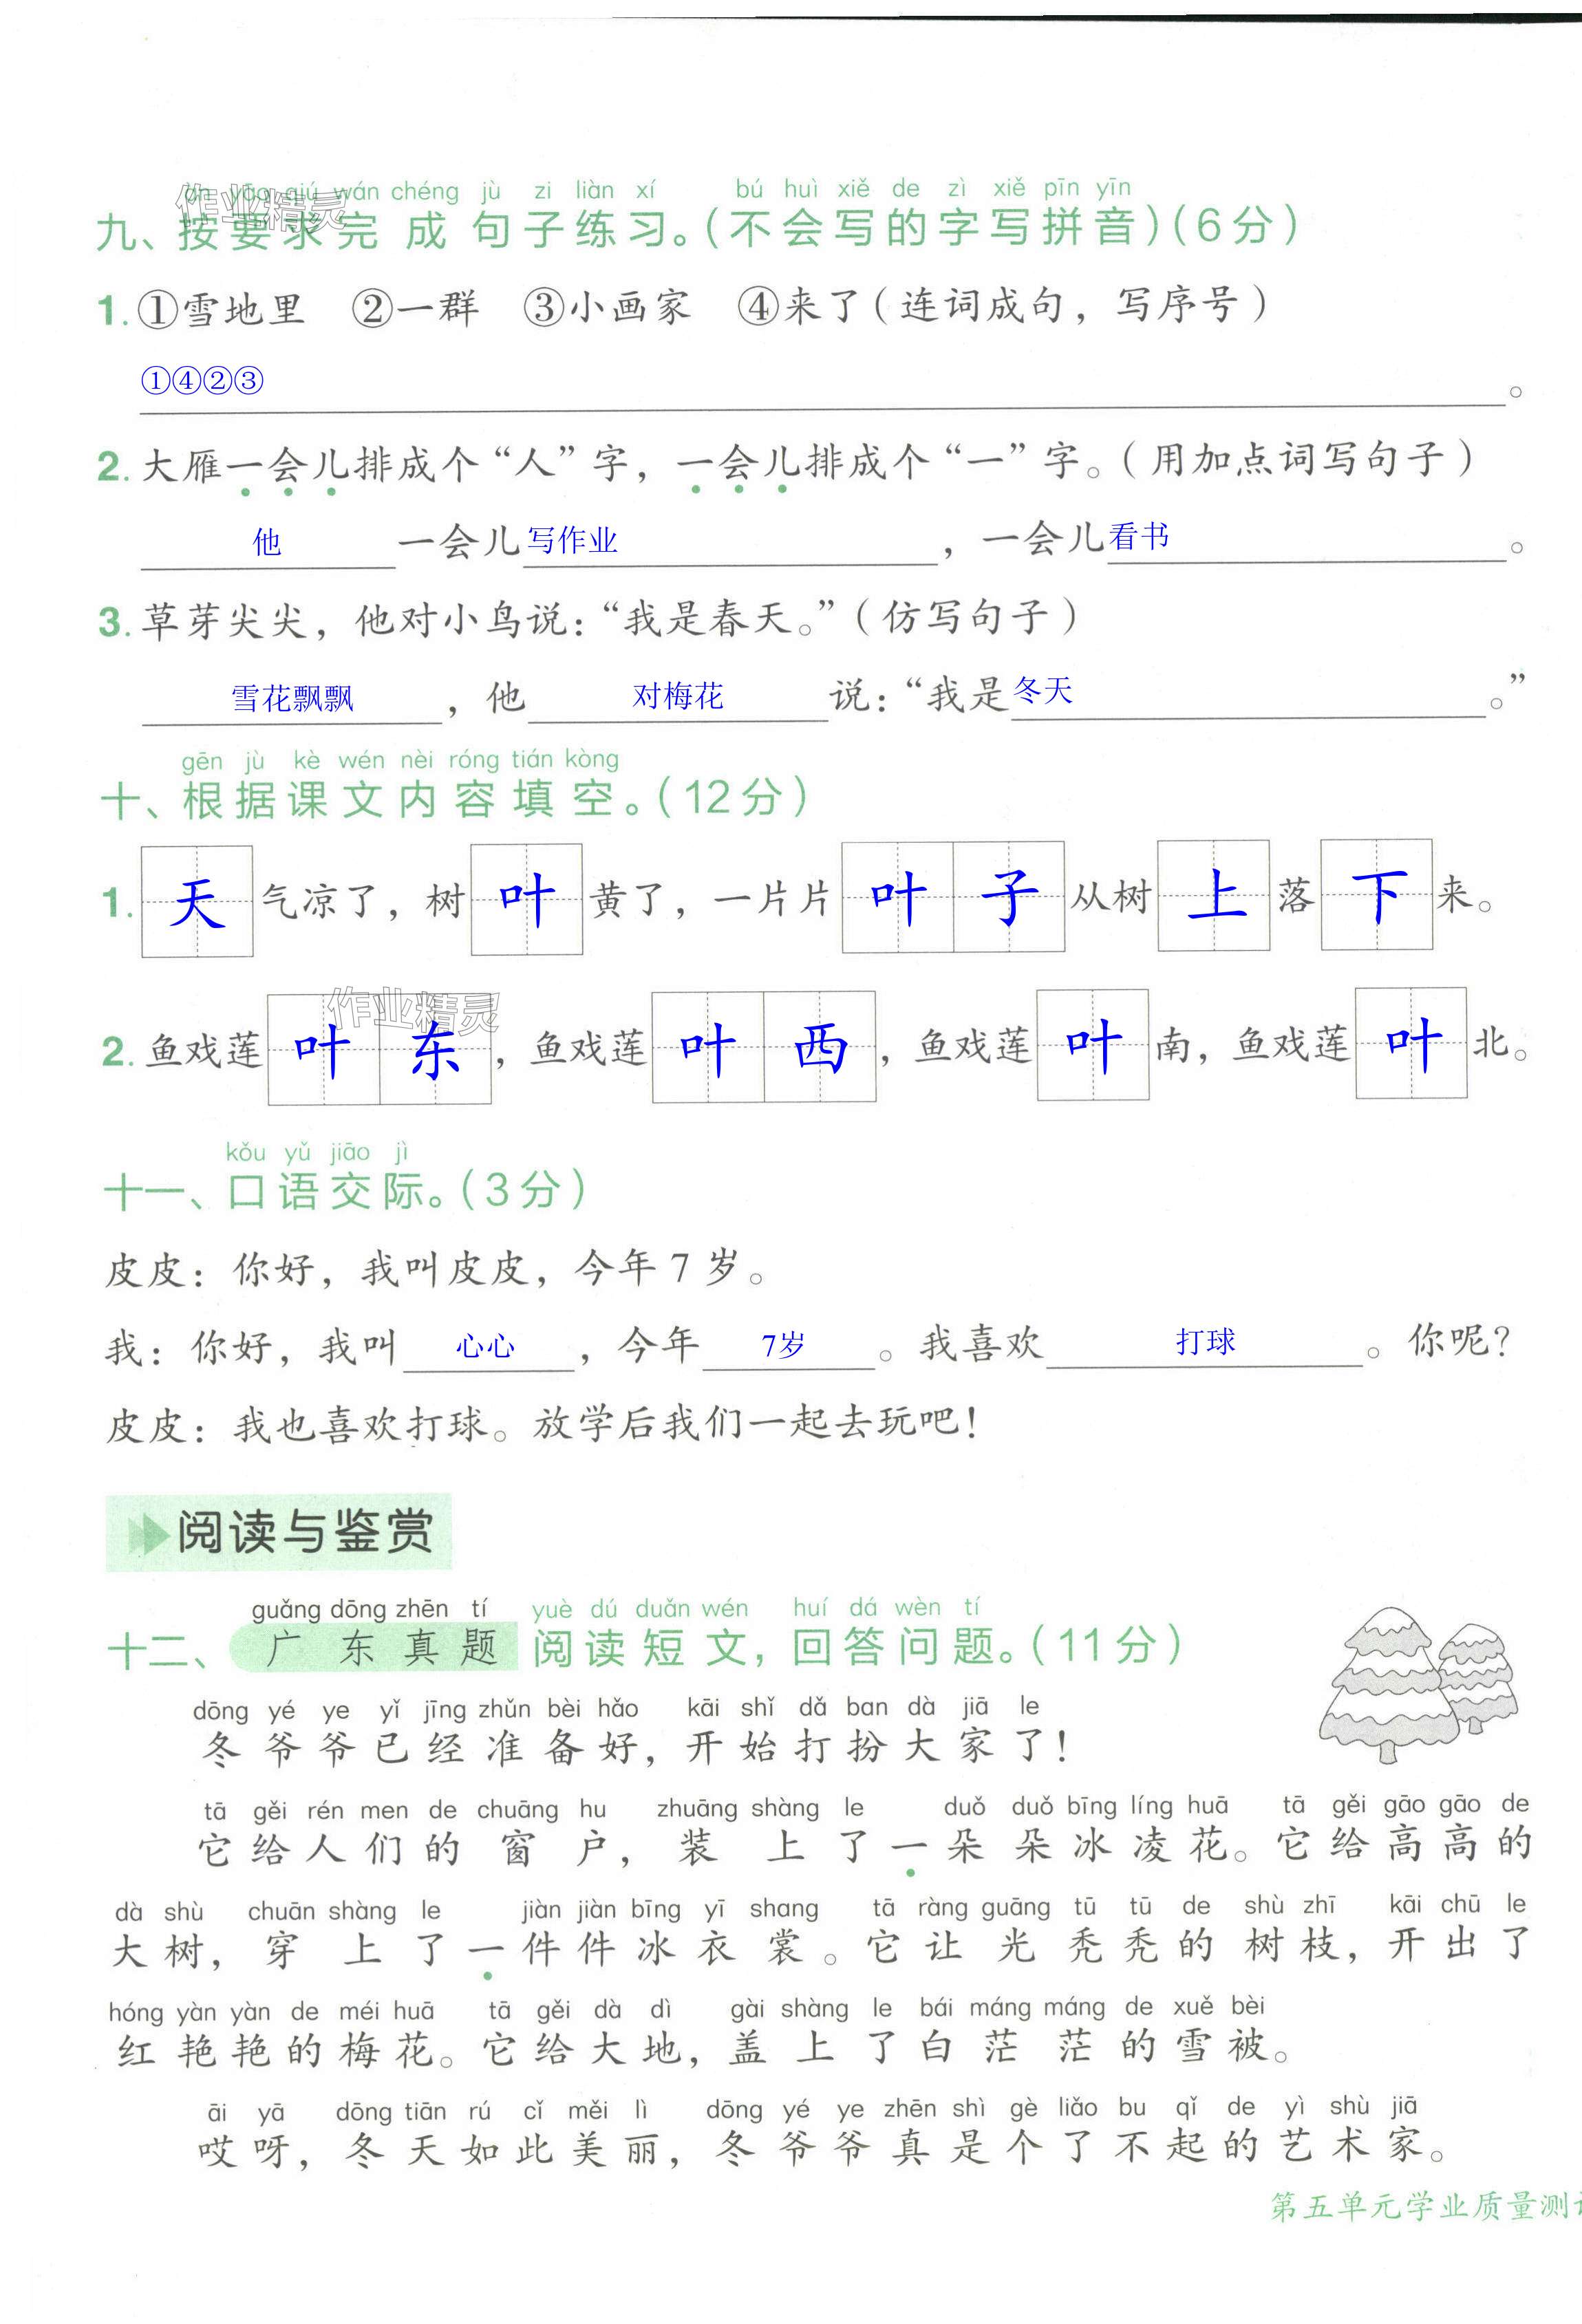 àn yāo qiú wán chéng jù zi liàn xí bú huì xiě de zì xiě pīn yīn
九、按要求完成句子练习。(不会写的字写拼音)(6分)
作业精灵
1. ①雪地里 ②一群 ③小画家 ④来了(连词成句，写序号)
①④②③。
2. 大雁一会儿排成个“人”字，一会儿排成个“一”字。(用加点词写句子)
他一会儿写作业，一会儿看书。
3. 草芽尖尖，他对小鸟说：“我是春天。”(仿写句子)
雪花飘飘，他对梅花说：“我是冬天。”
gēn jù kè wén nèi róng tián kòng
十、根据课文内容填空。(12分)
1. 天气凉了，树叶黄了，一片片叶子从树上落下来。
作业精灵
2. 鱼戏莲叶东，鱼戏莲叶西，鱼戏莲叶南，鱼戏莲叶北。
kǒu yǔ jiāo jì
十一、口语交际。(3分)
皮皮：你好，我叫皮皮，今年7岁。
我：你好，我叫心心，今年7岁。我喜欢打球。你呢？
皮皮：我也喜欢打球。放学后我们一起去玩吧！
阅读与鉴赏
guǎng dōng zhēn tí yuè dú duǎn wén huí dá wèn tí
十二、广东真题 阅读短文，回答问题。(11分)
dōng yé ye yǐ jīng zhǔn bèi hǎo kāi shǐ dǎ ban dà jiā le
冬爷爷已经准备好，开始打扮大家了！
tā gěi rén men de chuāng hu zhuāng shàng le duǒ duǒ bīng líng huā tā gěi gāo gāo de
它给人们的窗户，装上了一朵朵冰凌花。它给高高的
dà shù chuān shàng le jiàn jiàn bīng yī shang tā ràng guāng tū tū de shù zhī kāi chū le
大树，穿上了一件件冰衣裳。它让光秃秃的树枝，开出了
hóng yàn yàn de méi huā tā gěi dà dì gài shàng le bái máng máng de xuě bèi
红艳艳的梅花。它给大地，盖上了白茫茫的雪被。
āi yā dōng tiān rú cǐ měi lì dōng yé ye zhēn shì gè liǎo bu qǐ de yì shù jiā
哎呀，冬天如此美丽，冬爷爷真是个了不起的艺术家。
第五单元学业质量测